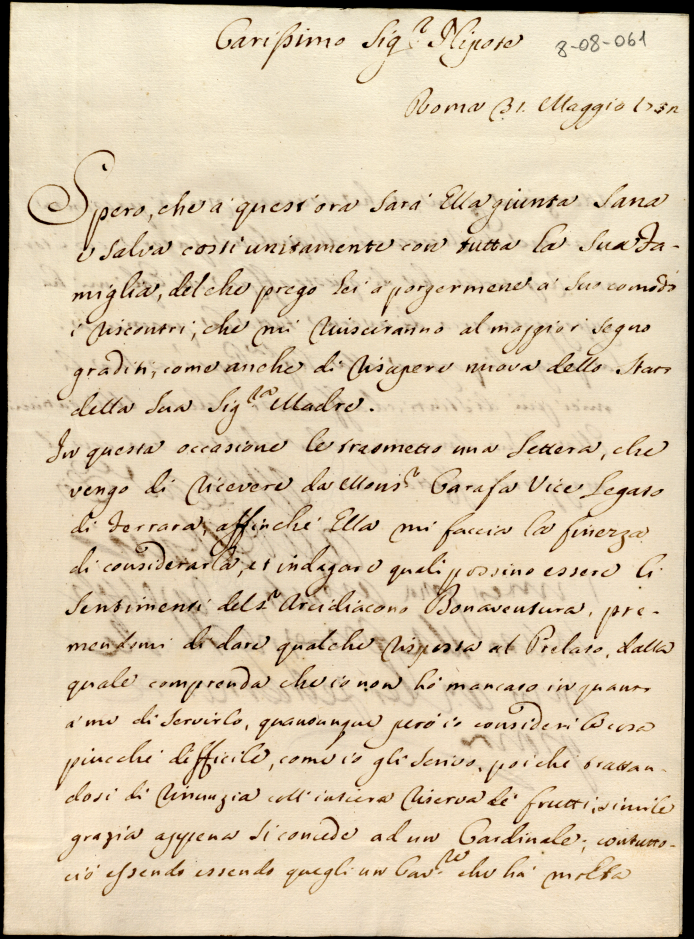 Carissimo Sig.r Nipote
8-08-061
Roma 31. Maggio
Spero, che a' quest'ora sarà Ella giunta sana
e salva costì unitamente con tutta la sua Fa-
miglia, del che prego Lei a porgermene a' suo comodo
i riscontri, che mi riusciranno al maggior segno
graditi, come anche di risapere nuova dello stato
della sua Sig.ra Madre.
In questa occasione le trasmetto una Lettera, che
vengo di ricevere da Mons.r Carafa Vice Legato
di Ferrara, affinché Ella mi faccia la finezza
di considerarla, et indagare quali possino essere li
sentimenti del S.r Arcidiacono Bonaventura, pre-
mendomi di dare qualche risposta al Prelato, dalla
quale comprenda che io non hò mancato in quanto
a me di servirlo, quantunque però io consideri la cosa
piucché difficile, come io gli scrivo, poiché trattan-
dosi di rinunzia coll'intiera riserva de' frutti, simile
grazia appena si concede ad un Cardinale; contutto-
ciò essendo essendo quegli un Cav.re che hà molta